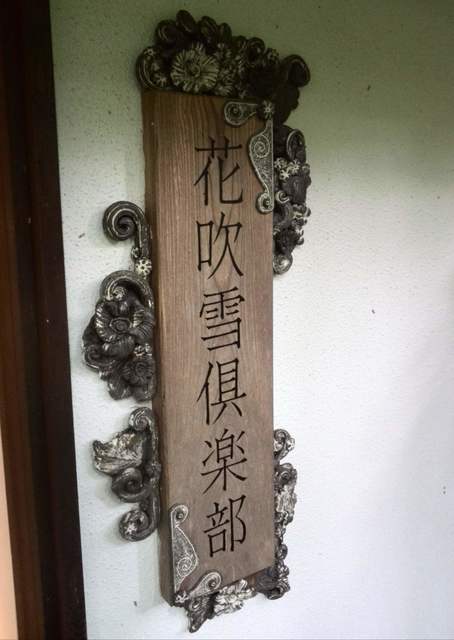 花吹雪倶楽部